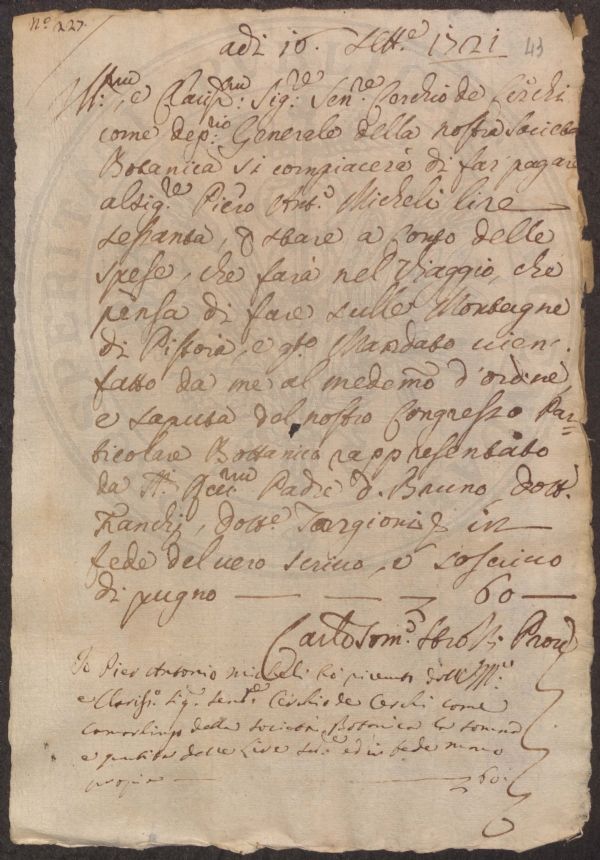 N.º 227.
adi 16. Sett.e 1721
43
Ill.mo, e Clariss.mo Sig.re Sen.re Cerchio de Cerchi
come dep.rio Generale della nostra Società
Botanica si compiacerà di far pagare
al Sig.re Piero Ant.o Micheli lire
sessanta, e sbare a Conto delle
spese, che farà nel Viaggio, che
pensa di fare sulle Montagne
di Pistoia, e q.to Mandato vien
fatto da me al medemo d'ordine,
e saputa del nostro Congresso Par=
ticolare Bottanico rappresentato
da Padre D. Bruno, Dott.
Franchi, Dott.e Targioni in
fede del vero scrivo, e soscrivo
di pugno — — — 60 —
Carlo Tom.o Prov.
Io Pier Antonio Micheli ho ricevuto dall Ill.mo
e Clariss.o Sig.r Sen.re Cerchio de Cerchi come
Camarlingo della Società Botanica la somma
e partita delle Lire ed in fede mano
propia — 60.